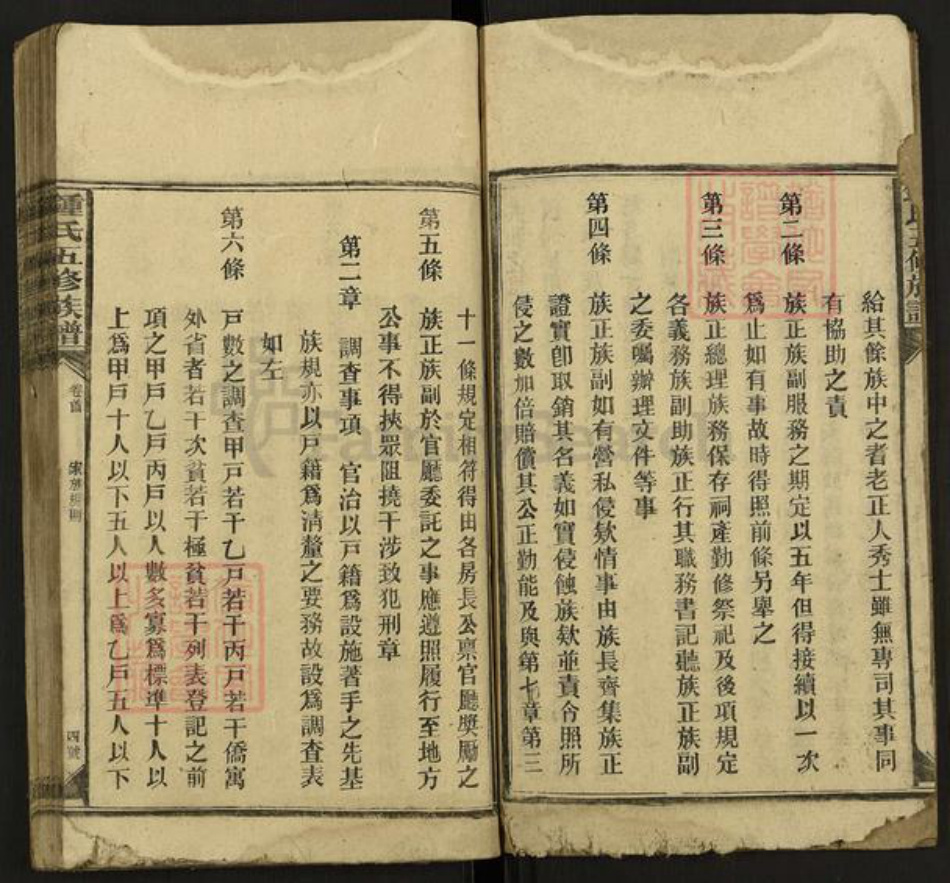 給其餘族中之耆老正人秀士雖無專司其事同
有協助之責
第二條 族正族副服務之期定以五年但得接續以一次
爲止如有事故時得照前條另舉之
第三條 族正總理族務保存祠產勤修祭祀及後項規定
各義務族副助族正行其職務書記聽族正族副
之委囑辦理文件等事
第四條 族正族副如有營私侵欸情事由族長齊集族正
證實卽取銷其名義如實侵蝕族欸並責令照所
侵之數加倍賠償其公正勤能及與第七章第三
十一條規定相符得由各房長公稟官廳獎勵之
第五條 族正族副於官廳委託之事應遵照履行至地方
公事不得挾眾阻撓干涉致犯刑章
第二章 調查事項 官治以戸籍爲設施著手之先基
族規亦以戸籍爲清釐之要務故設爲調查表
如左
第六條 戸數之調查甲戸若干乙戸若干丙戸若干僑寓
外省者若干次貧若干極貧若干列表登記之前
項之甲戸乙戸丙戸以人數多寡爲標準十人以
上爲甲戸十人以下五人以上爲乙戸五人以下
鍾氏五修族譜
卷首
四號